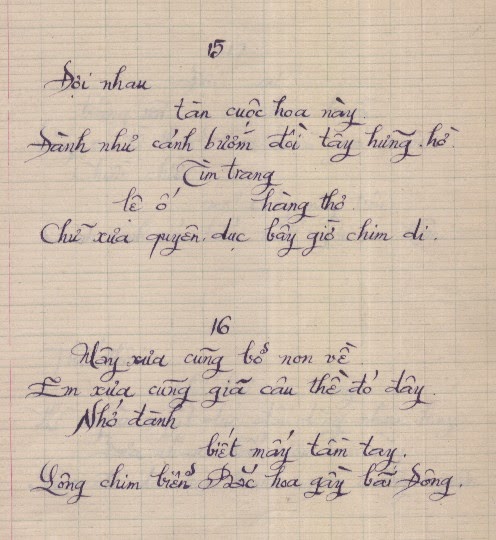 15
Đợi nhau
tàn cuộc hoa này
Đành như cánh bướm đồi tây hững hờ.
Tìm trang
lệ ố hàng thơ
Chữ xưa quyên dục bây giờ chim di.
16
Mây xưa cũng bỏ non về
Em xưa cũng giã câu thề đó đây.
Nhỏ đành
biết mấy tầm tay.
Lông chim biển Bắc hoa gầy bãi Đông.